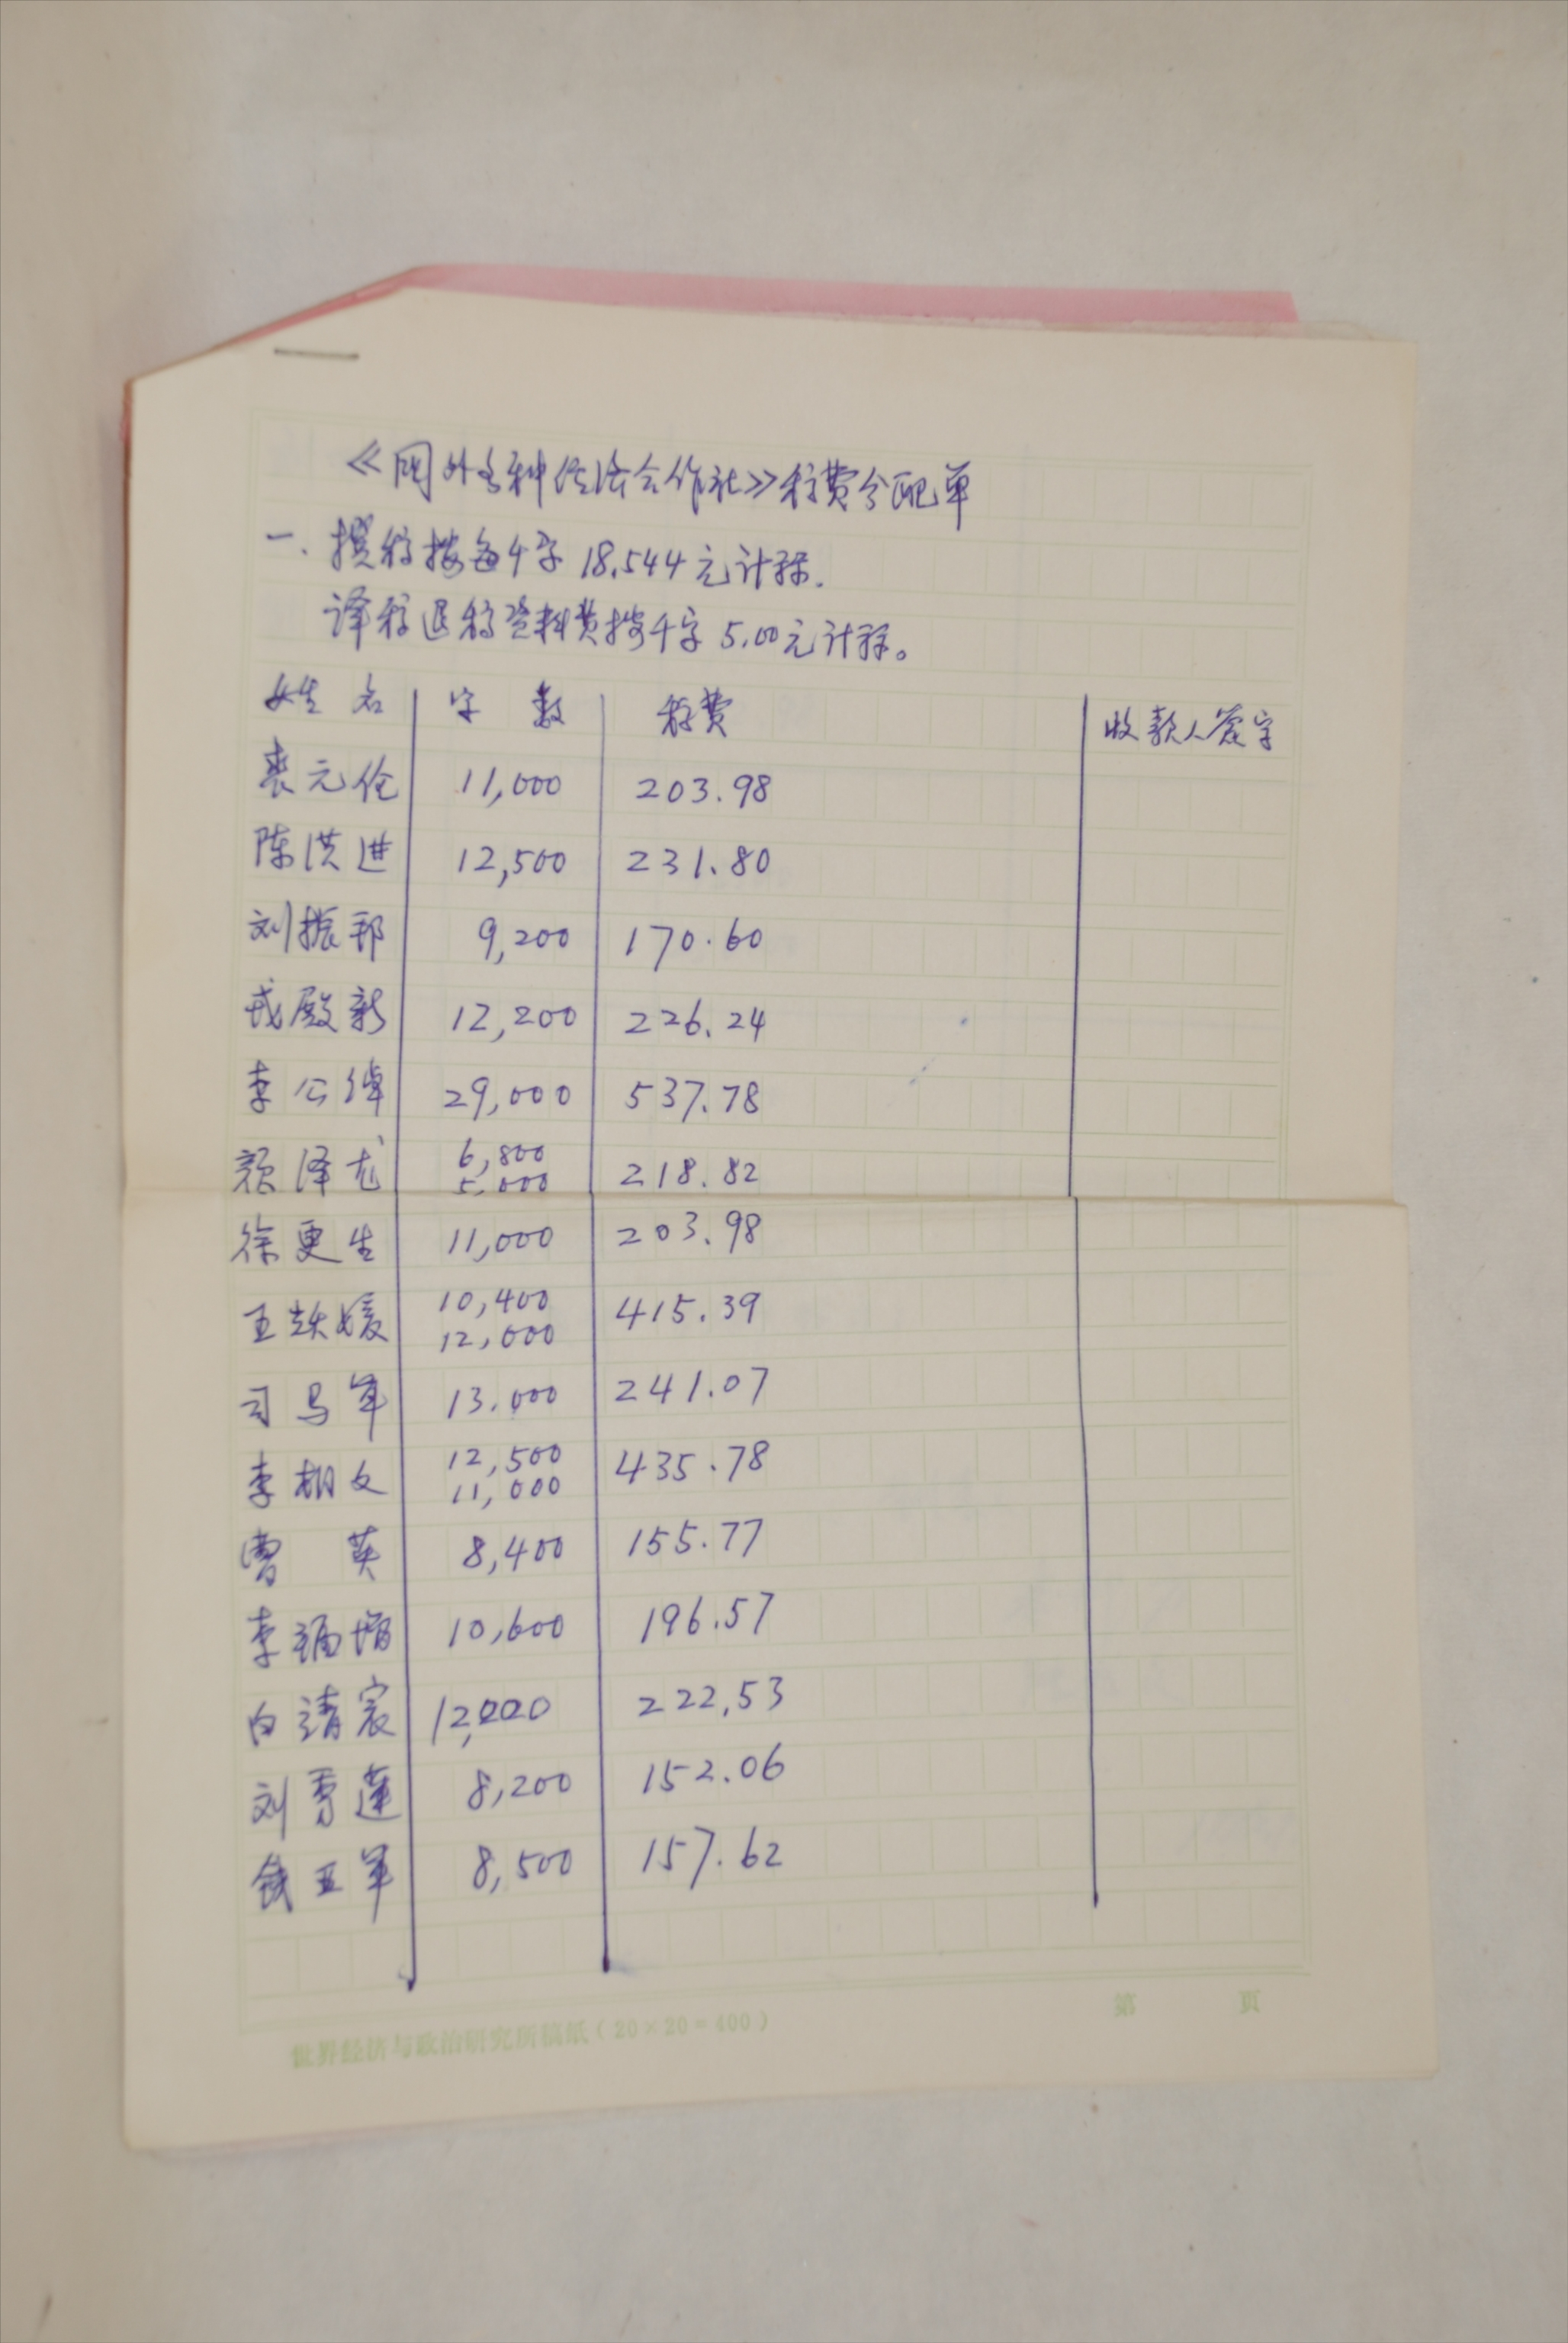 《国外各种经济合作社》稿费分配单
一、撰稿按每千字18.544元计酬.
译稿退稿资料费按千字5.00元计酬。
姓名 字数 稿费 收款人签字
裘元伦 11,000 203.98
陈洪进 12,500 231.80
刘振邦 9,200 170.60
戎殿新 12,200 226.24
李公绰 29,000 537.78
颜泽龙 6,800 5,000 218.82
徐更生 11,000 203.98
王耀媛 10,400 12,000 415.39
司马军 13.000 241.07
李树文 12,500 11,000 435.78
曹英 8,400 155.77
李锡增 10,600 196.57
白靖宸 12,000 222,53
刘秀莲 8,200 152.06
钱亚军 8,500 157.62
世界经济与政治研究所稿纸(20×20=400) 第 页